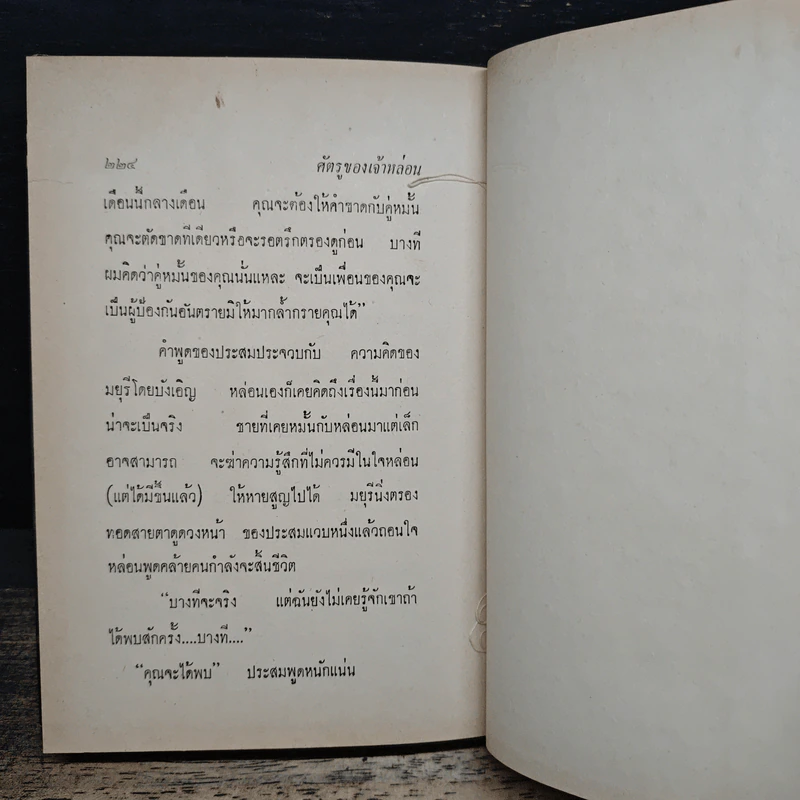 ๒๒๔ ศัตรูของเจ้าหล่อน
เดือนนี้กลางเดือน คุณจะต้องให้คำขาดกับคู่หมั้น
คุณจะตัดขาดทีเดียวหรือจะรอตรึกตรองดูก่อน บางที
ผมคิดว่าคู่หมั้นของคุณนั่นแหละ จะเป็นเพื่อนของคุณจะ
เป็นผู้ป้องกันอันตรายมิให้มากล้ำกรายคุณได้”
คำพูดของประสมประจวบกับ ความคิดของ
มยุรีโดยบังเอิญ หล่อนเองก็เคยคิดถึงเรื่องนี้มาก่อน
น่าจะเป็นจริง ชายที่เคยหมั้นกับหล่อนมาแต่เล็ก
อาจสามารถ จะฆ่าความรู้สึกที่ไม่ควรมีในใจหล่อน
(แต่ได้มีขึ้นแล้ว) ให้หายสูญไปได้ มยุรีนิ่งตรอง
ทอดสายตาดูดวงหน้า ของประสมแวบหนึ่งแล้วถอนใจ
หล่อนพูดคล้ายคนกำลังจะสิ้นชีวิต
“บางทีจะจริง แต่ฉันยังไม่เคยรู้จักเขาถ้า
ได้พบสักครั้ง....บางที....”
“คุณจะได้พบ” ประสมพูดหนักแน่น